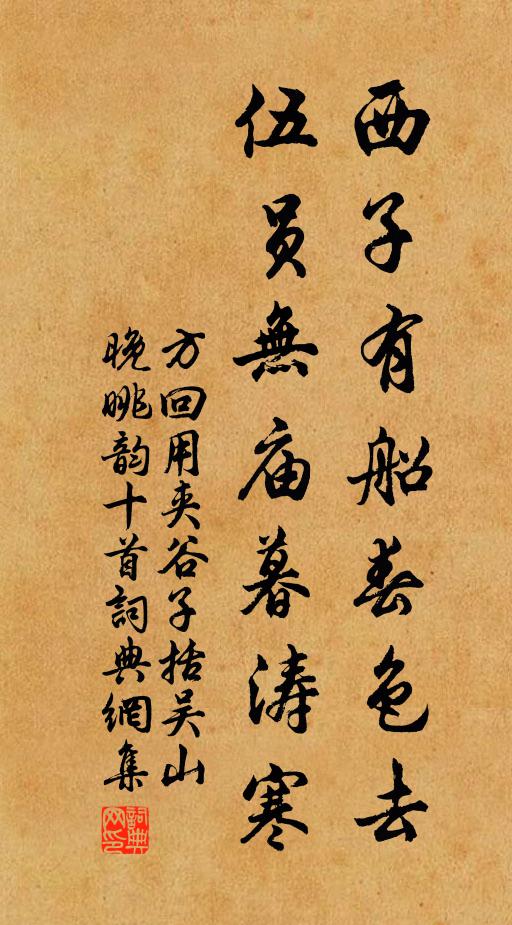 西子有船春色去
伍員無庙暮涛寒
方回用夹谷子括吴山
晚眺韵十首詞典網集
詞典网印